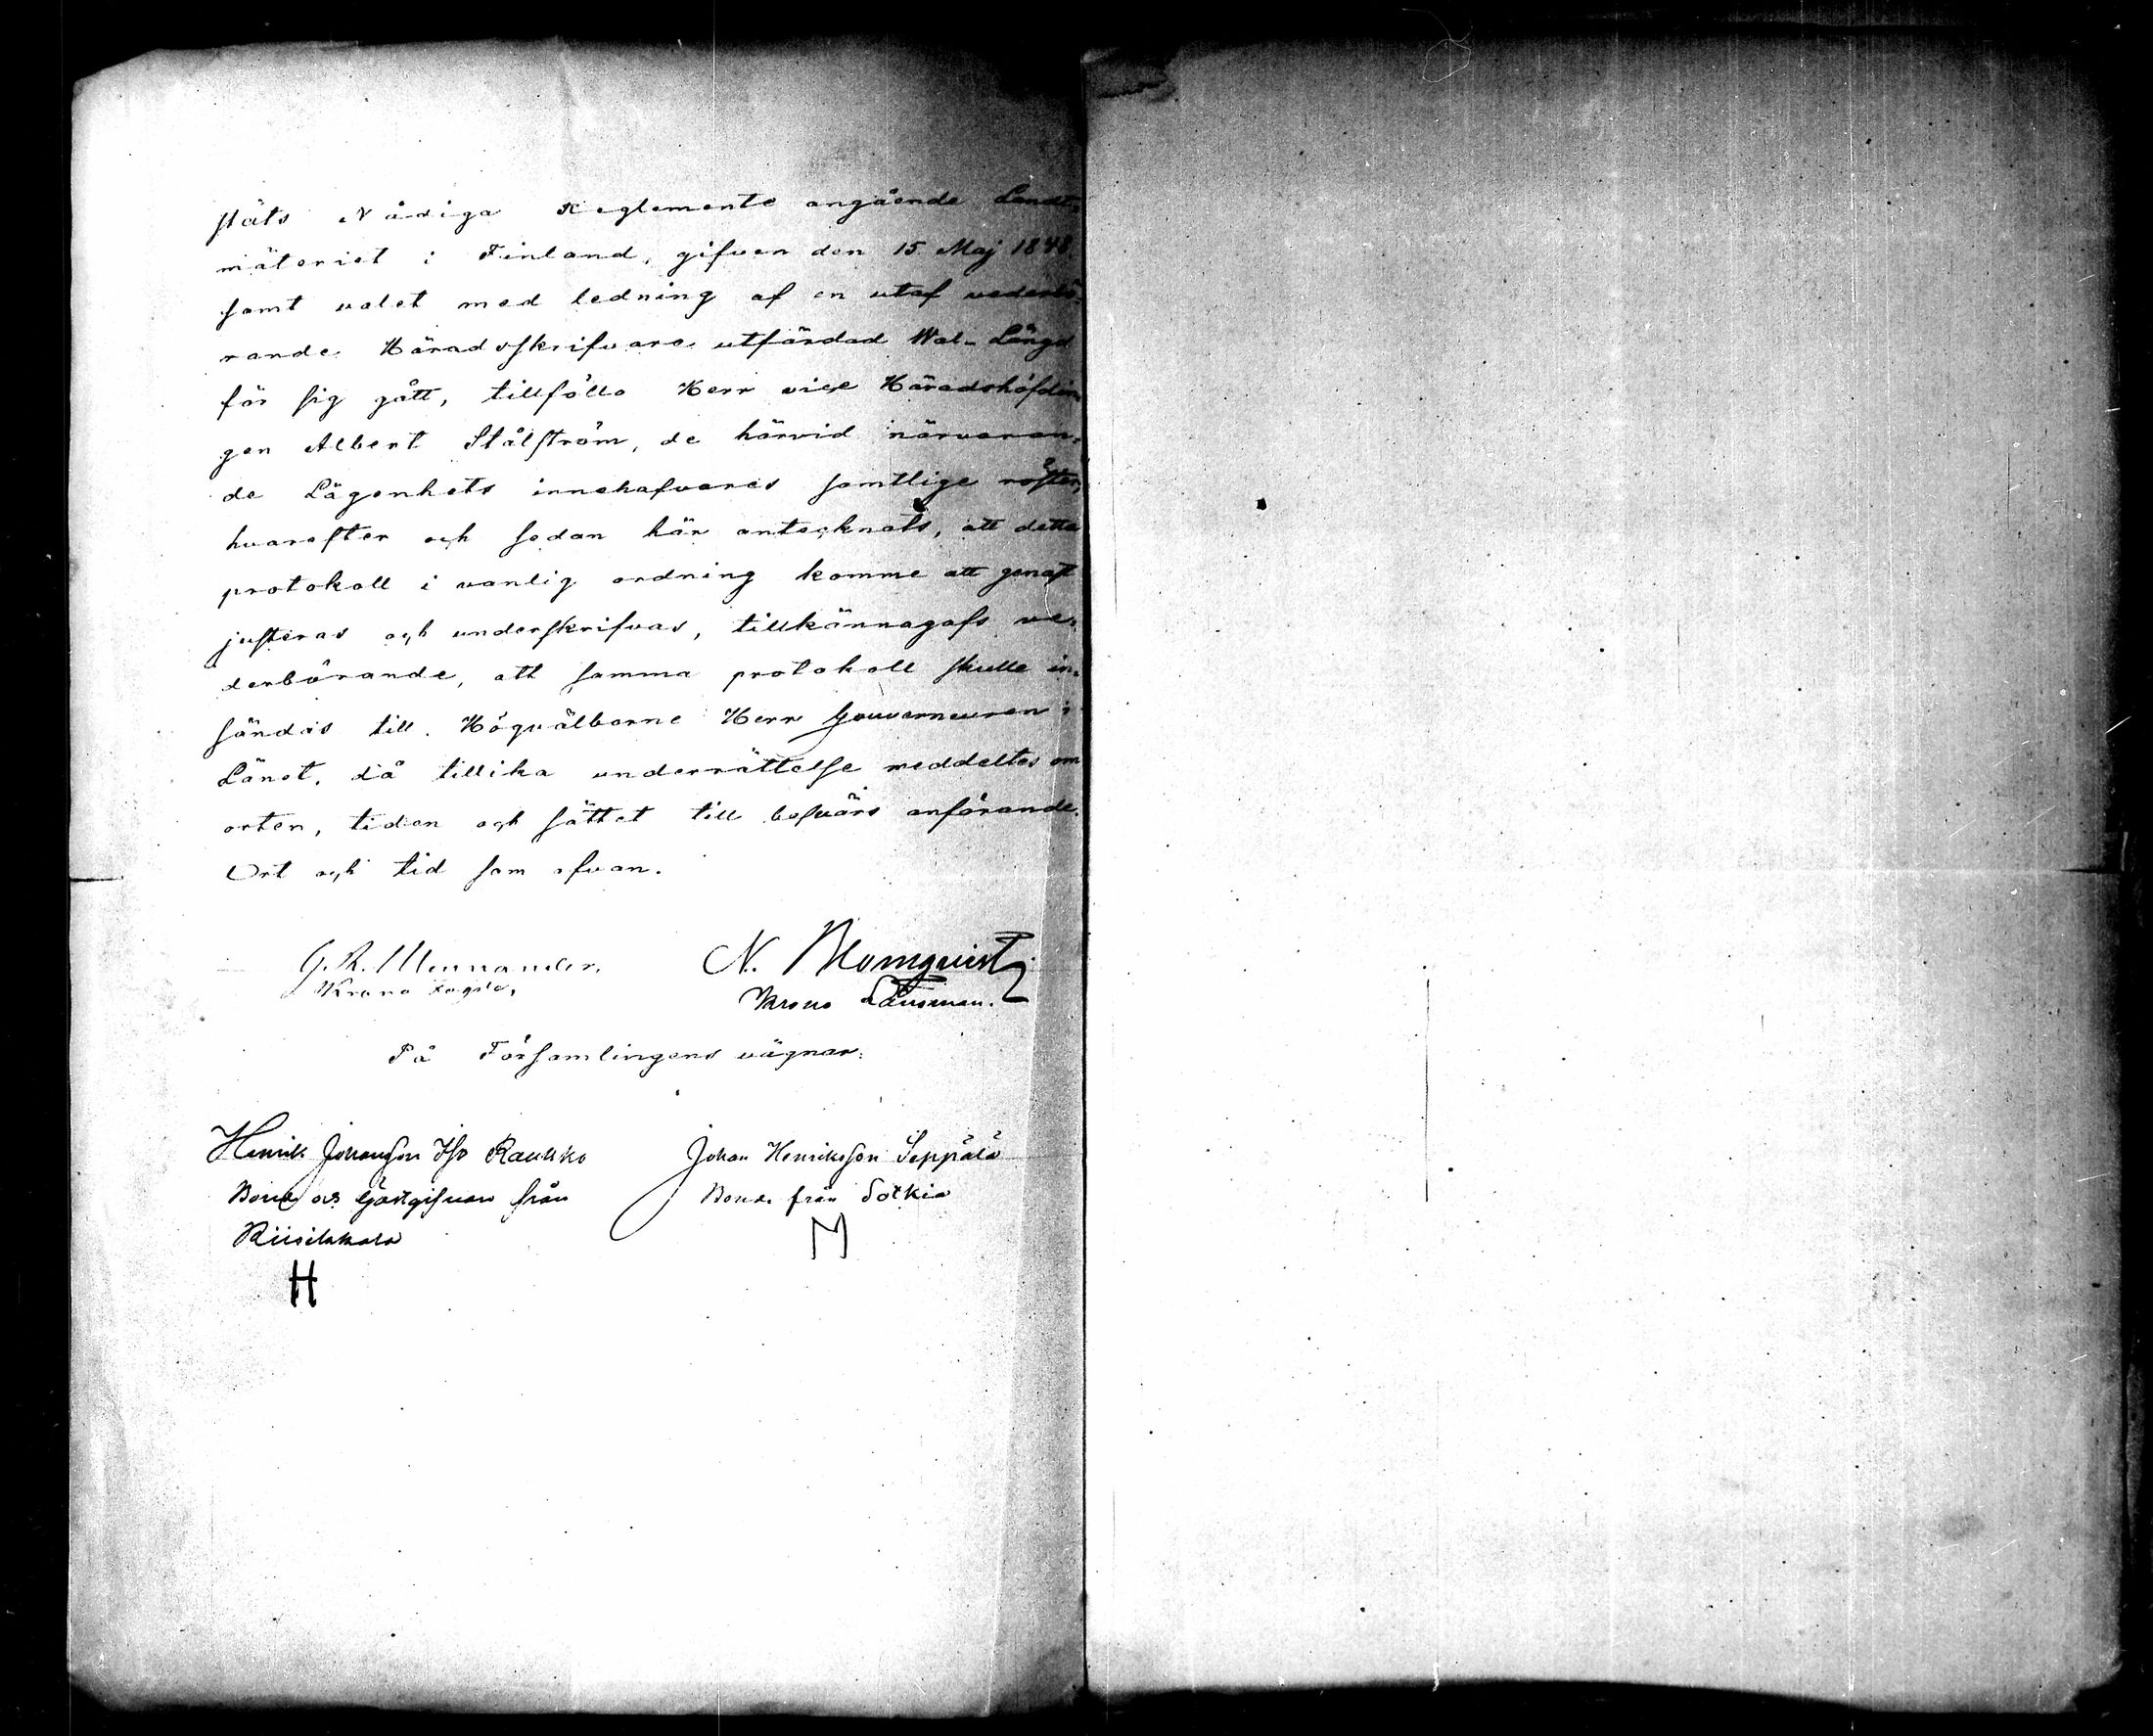 stäts Nådiga Reglemente angående Landt=
mäteriet i Finland, gifven den 15 Maj 1848
samt valet med ledning af en utaf vederbö
rande Häradsskrifvare utfärdad Wal-Längd
för sig gått, tillföllo Herr vice Häradshöfdin
gen Albert Stålström, de härvid närvaran=
de Lägenhets innehafvares samtlige röster,
hvarefter och sedan här antecknats, att detta
protokoll i vanlig ordning komme att genast
justeras och underskrifvas, tillkännagafs ve=
derbörande, att samma protokoll skulle in=
sändas till Högvälborne Herr Gouverneuren i
Länet, då tillika underrättelse meddeltes om
orten, tiden och sättet till besvärs anförande.
Ort och tid som ofvan.
G. R. Mennander,
Krono Fogde,
N. Blomqvist
Krono Länsman.
På Församlingens vägnar:
Henrik Johansson Iso Raukko
Bonde och Gästgifvare från
Riisikkala
H
Johan Henriksson Seppälä
Bonde från Sotkia
M